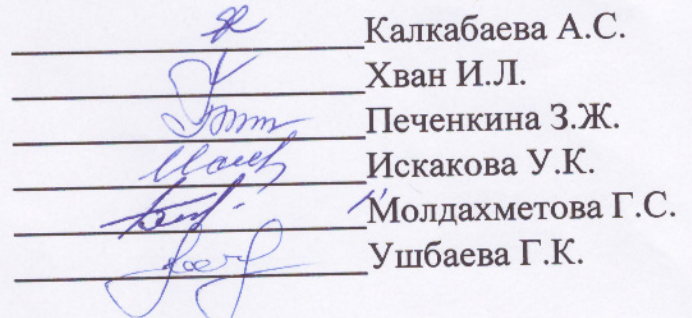 Калкабаева А.С.
Хван И.Л.
Печенкина З.Ж.
Искакова У.К.
Молдахметова Г.С.
Ушбаева Г.К.